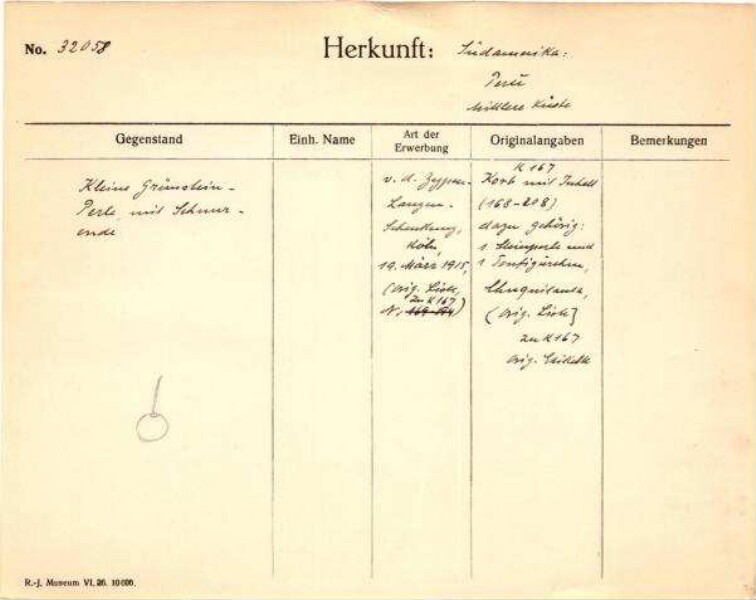 No. 32058
Herkunft: Südamerika:
Perú
Mittlere Küste
Gegenstand
Einh. Name
Art der
Erwerbung
Originalangaben
Bemerkungen
Kleine Grünstein-
Perle mit Schnur-
ende
v. d. Zypen-
Langen-
Schenkung,
Köln,
19. März 1915,
(orig. Liste,
zu K 167)
N.
K 167
Korb mit Inhalt
(168-208)
dazu gehörig:
1 Steinperle und
1 Tonfigürchen,
(Orig. Liste)
zu K 167
orig. Etikette
R.-J. Museum VI. 26. 10000.